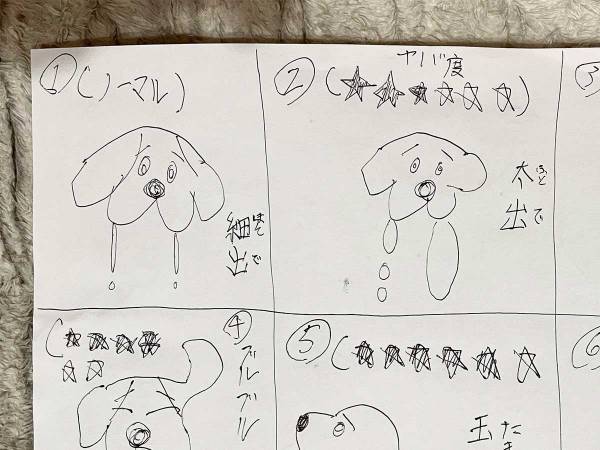 ① (ノーマル)
細出
ほそで
② ヤバ度
(★★★☆☆☆)
太出
ふとで
③
④ (★★★★
☆☆
ブルブル
⑤ (★★★★★☆
玉
たま
⑥